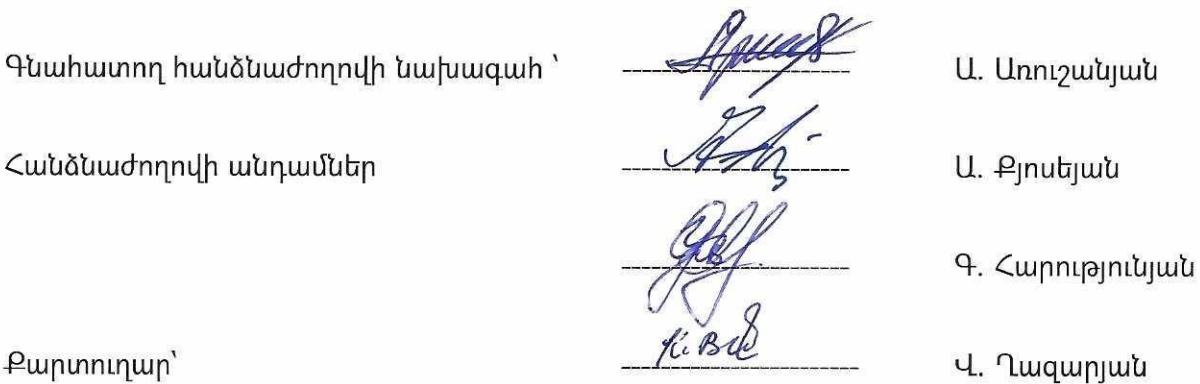 Գնահատող հանձնաժողովի նախագահ ՝ Ա. Առուշանյան
Հանձնաժողովի անդամներ Ա. Քյոսեյան
Գ. Հարությունյան
Քարտուղար՝ Վ. Ղազարյան